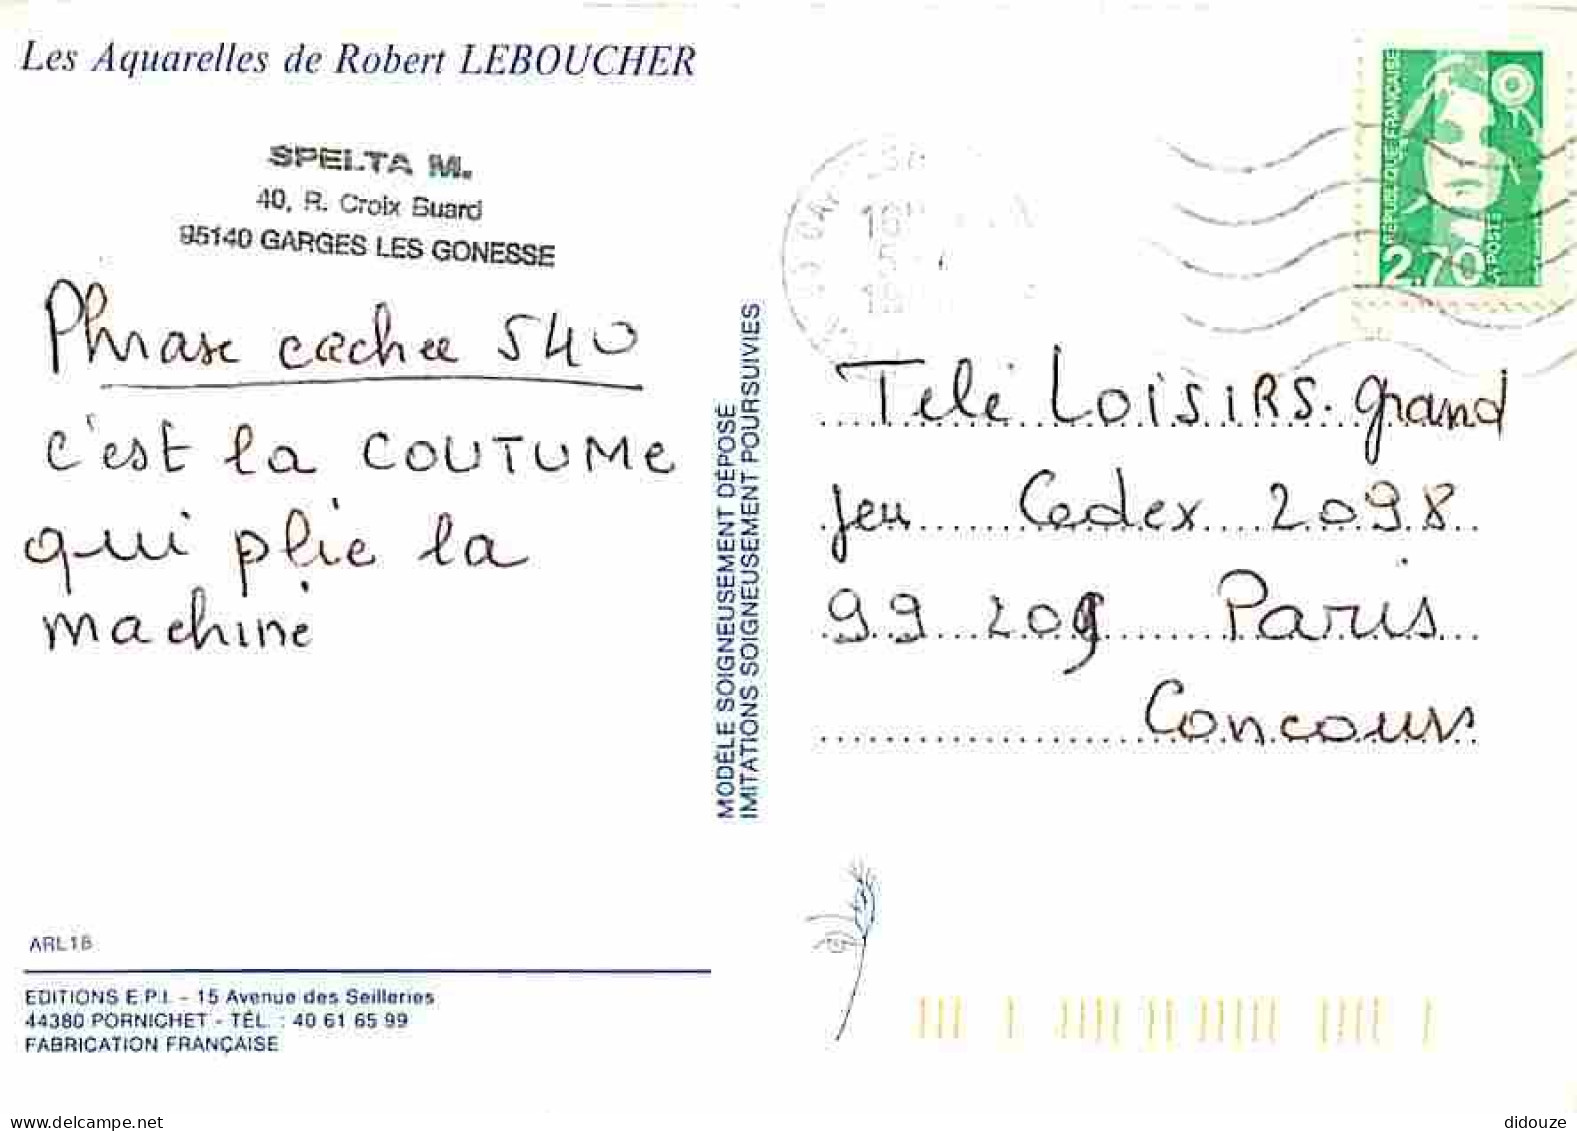 Les Aquarelles de Robert LEBOUCHER
SPELTA M.
40, R. Croix Buard
95140 GARGES LES GONESSE
Phrase cachee 540
c'est la COUTUMe
qui plie la
machine
ARL18
EDITIONS E.P.I. - 15 Avenue des Seilleries
44380 PORNICHET - TÉL. : 40 61 65 99
FABRICATION FRANÇAISE
MODÈLE SOIGNEUSEMENT DÉPOSÉ
IMITATIONS SOIGNEUSEMENT POURSUIVIES
RÉPUBLIQUE FRANÇAISE
2,70
LA POSTE
Télé LOISIRS. grand
jeu Cedex 2098
99 209 Paris
Concours
www.delcampe.net
didouze